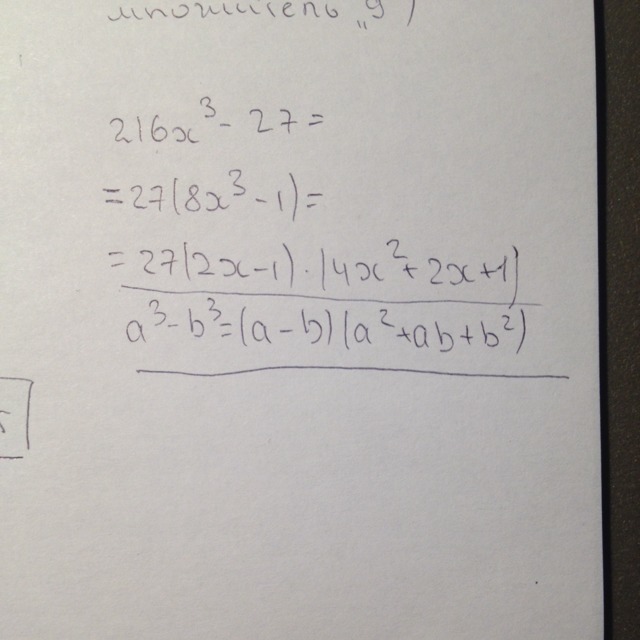 множитель „9")
216x³ - 27 =
= 27(8x³ - 1) =
= 27(2x-1)·(4x²+2x+1)
a³-b³=(a-b)(a²+ab+b²)